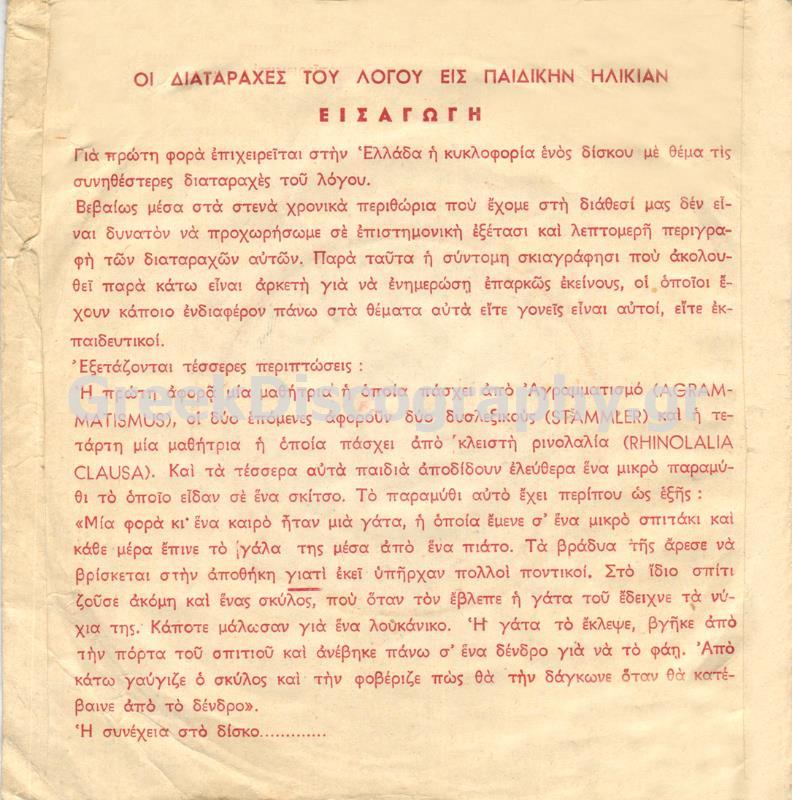 ΟΙ ΔΙΑΤΑΡΑΧΕΣ ΤΟΥ ΛΟΓΟΥ ΕΙΣ ΠΑΙΔΙΚΗΝ ΗΛΙΚΙΑΝ
ΕΙΣΑΓΩΓΗ
Γιὰ πρώτη φορὰ ἐπιχειρεῖται στὴν Ἑλλάδα ἡ κυκλοφορία ἑνὸς δίσκου μὲ θέμα τὶς
συνηθέστερες διαταραχὲς τοῦ λόγου.
Βεβαίως μέσα στὰ στενὰ χρονικὰ περιθώρια ποὺ ἔχομε στὴ διάθεσί μας δέν εἶ-
ναι δυνατὸν νὰ προχωρήσωμε σὲ ἐπιστημονικὴ ἐξέτασι καὶ λεπτομερῆ περιγρα-
φὴ τῶν διαταραχῶν αὐτῶν. Παρὰ ταῦτα ἡ σύντομη σκιαγράφησι ποὺ ἀκολου-
θεῖ παρὰ κάτω εἶναι ἀρκετὴ γιὰ νὰ ἐνημερώσῃ ἐπαρκῶς ἐκείνους, οἱ ὁποῖοι ἔ-
χουν κάποιο ἐνδιαφέρον πάνω στὰ θέματα αὐτὰ εἴτε γονεῖς εἶναι αὐτοί, εἴτε ἐκ-
παιδευτικοί.
Ἐξετάζονται τέσσερες περιπτώσεις :
Ἡ πρώτη ἀφορᾷ μία μαθήτρια ἡ ὁποία πάσχει ἀπὸ Ἀγραμματισμό (AGRAM-
MATISMUS), οἱ δύο ἑπόμενες ἀφοροῦν δύο δυσλεξικοὺς (STAMMLER) καὶ ἡ τε-
τάρτη μία μαθήτρια ἡ ὁποία πάσχει ἀπὸ κλειστὴ ρινολαλία (RHINOLALIA
CLAUSA). Καὶ τὰ τέσσερα αὐτὰ παιδιὰ ἀποδίδουν ἐλεύθερα ἕνα μικρὸ παραμύ-
θι τὸ ὁποῖο εἶδαν σὲ ἕνα σκίτσο. Τὸ παραμύθι αὐτὸ ἔχει περίπου ὡς ἑξῆς :
«Μία φορὰ κι' ἕνα καιρὸ ἦταν μιὰ γάτα, ἡ ὁποία ἔμενε σ' ἕνα μικρὸ σπιτάκι καὶ
κάθε μέρα ἔπινε τὸ γάλα της μέσα ἀπὸ ἕνα πιάτο. Τὰ βράδυα τῆς ἄρεσε νὰ
βρίσκεται στὴν ἀποθήκη γιατὶ ἐκεῖ ὑπῆρχαν πολλοὶ ποντικοί. Στὸ ἴδιο σπίτι
ζοῦσε ἀκόμη καὶ ἕνας σκύλος, ποὺ ὅταν τὸν ἔβλεπε ἡ γάτα τοῦ ἔδειχνε τὰ νύ-
χια της. Κάποτε μάλωσαν γιὰ ἕνα λουκάνικο. Ἡ γάτα τὸ ἔκλεψε, βγῆκε ἀπὸ
τὴν πόρτα τοῦ σπιτιοῦ καὶ ἀνέβηκε πάνω σ' ἕνα δένδρο γιὰ νὰ τὸ φάῃ. Ἀπὸ
κάτω γαύγιζε ὁ σκύλος καὶ τὴν φοβέριζε πὼς θὰ τὴν δάγκωνε ὅταν θὰ κατέ-
βαινε ἀπὸ τὸ δένδρο».
Ἡ συνέχεια στὸ δίσκο.............
GreekDiscography.gr